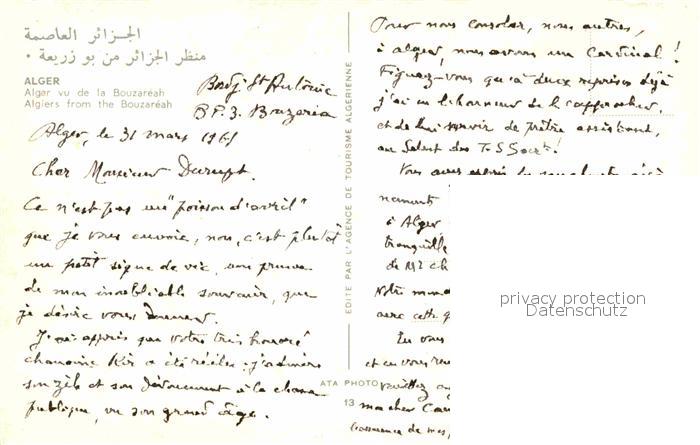 الجـزائر العاصمة
منظر الجزائر من بو زريعة •
ALGER
Alger vu de la Bouzaréah
Algiers from the Bouzaréah
Bordj St Antoine
B.P. 3. Bouzaréa
Alger, le 31 mars 196
Cher Monsieur
Ce n'est pas un "poisson d'avril"
que je vous envoie, non, c'est plutôt
un petit signe de vie, une preuve
de mon inoubliable souvenir, que
je désire vous donner.
J'ai appris que votre très honoré
chanoine Kir a été réélu : j'admire
son zèle et son dévouement à la chose
publique, vu son grand âge.
EDITÉ PAR L'AGENCE DE TOURISME ALGERIENNE
ATA PHOTO
13
Pour nous consoler, nous autres,
à Alger, nous avons un Cardinal !
Figurez-vous qu'à deux reprises déjà
j'ai eu l'honneur de l'approcher,
et de lui servir de prêtre assistant,
au Salut du T. S. Sacrt !
Vous avez
à Alger
tranquille
de Mr
Notre
avec cette
et
veuillez
mon cher
l'assurance de mes
privacy protection
Datenschutz